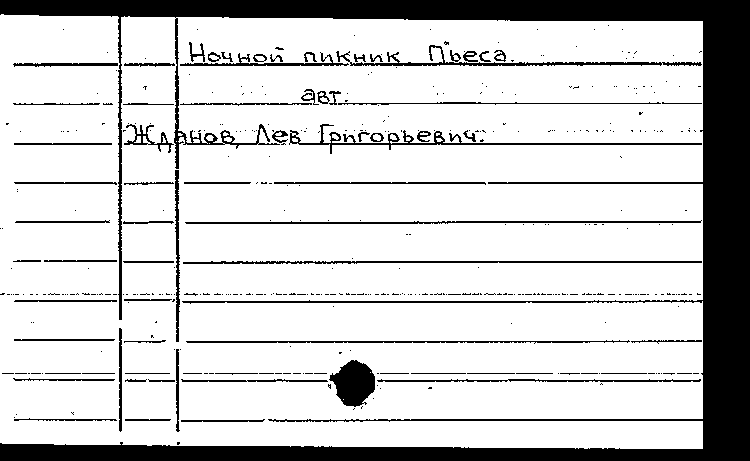 Ночной пикник. Пьеса.
авт.
Жданов, Лев Григорьевич.